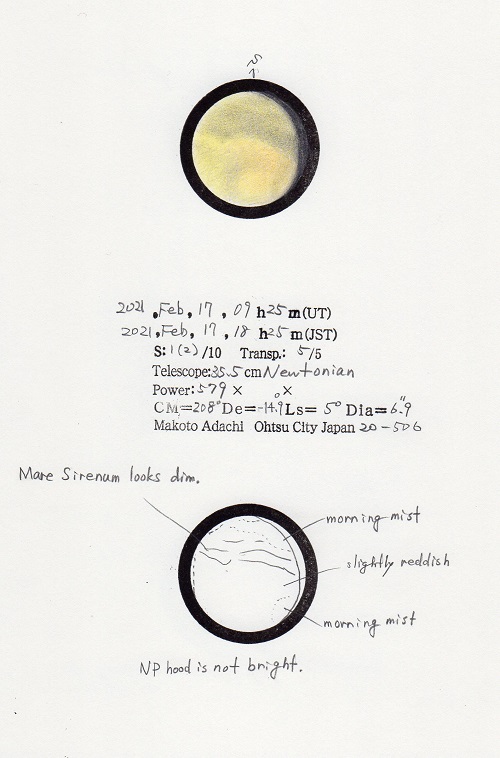 S
2021, Feb, 17, 09 h25 m(UT)
2021, Feb, 17, 18 h25 m(JST)
S: 1(2)/10 Transp.: 5/5
Telescope:35.5cm Newtonian
Power:579× 。×
CM=208° De=-14.9 Ls= 5° Dia=6."9
Makoto Adachi Ohtsu City Japan 20-506
Mare Sirenum looks dim.
morning mist
slightly reddish
morning mist
NP hood is not bright.